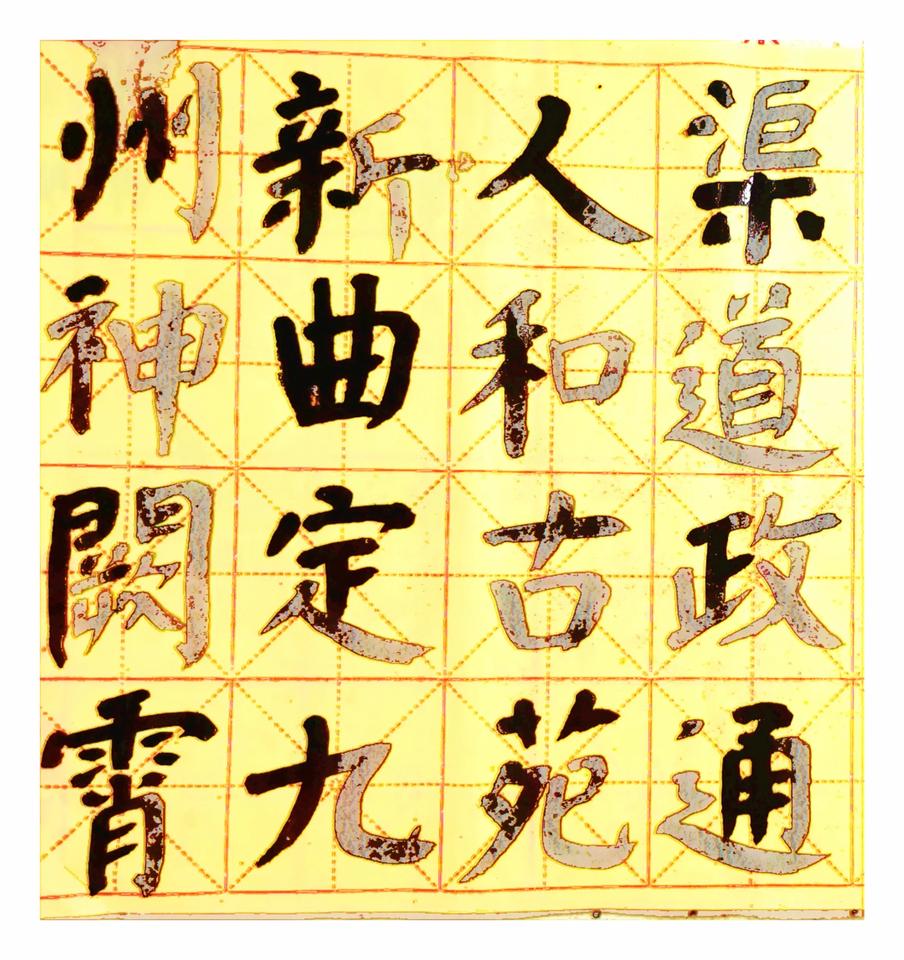 渠道政通
人和古苑
新曲定九
州神闕霄